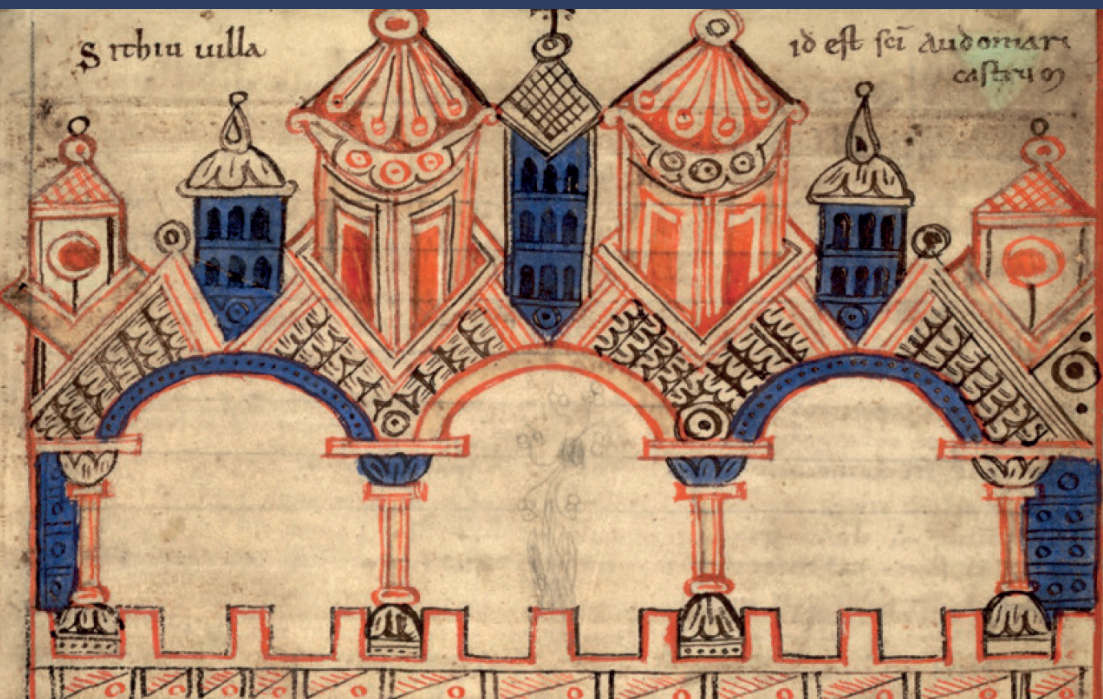 Sithiu uilla
id est scī Audomari
castrum